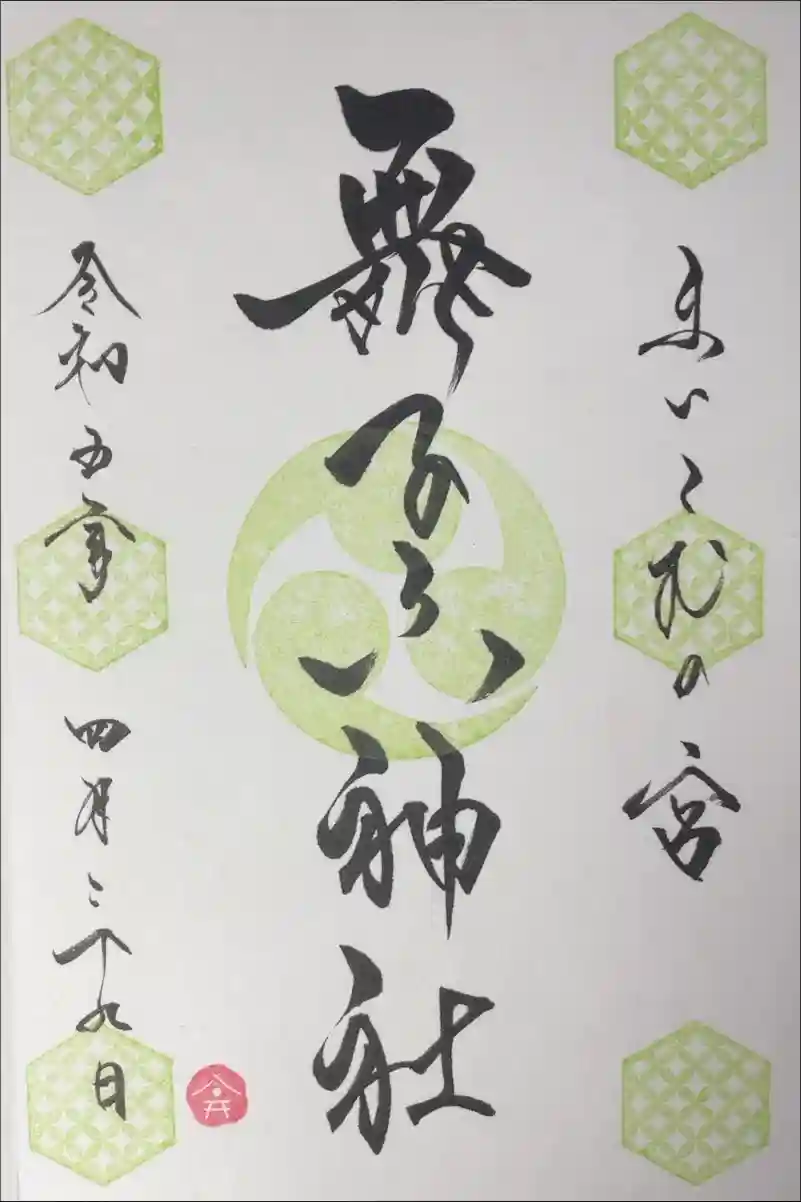 まいこむの宮
舞子六神社
令和五年 四月二十九日